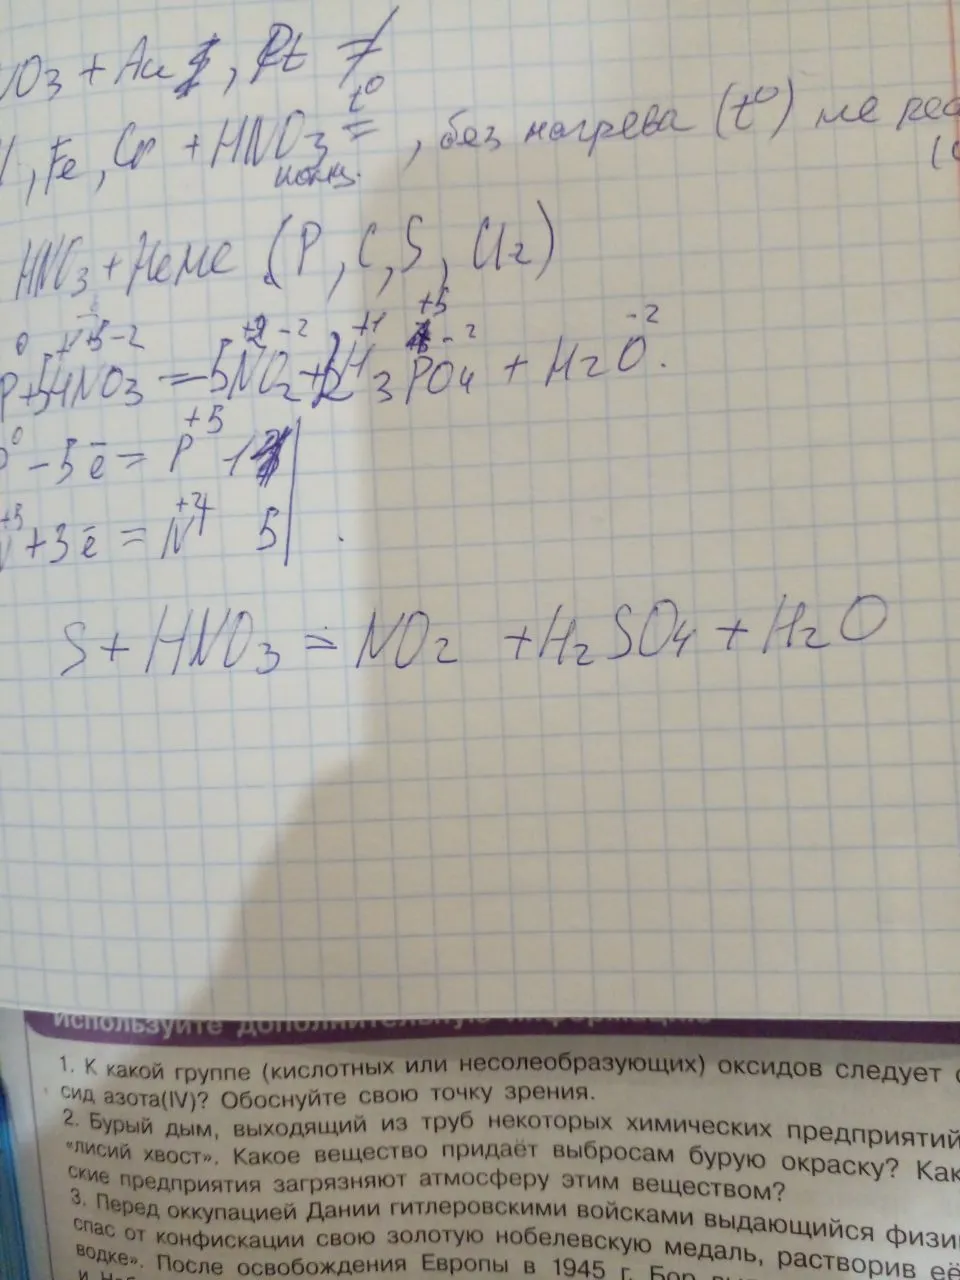 VO3 + Au, Pt ≠
, Fe, Cr + HNO3 t° = , без нагрева (t°) не реа
конц.
HNO3 + НеМе (P, C, S, Cl2)
0 +5 -2 +2 -2 +1 +5 -2 -2
P + 5HNO3 = 5NO2 + H3PO4 + H2O.
P⁰ - 5ē = P⁺⁵ 1
N⁺⁵ + 3ē = N⁺⁴ 5 .
S + HNO3 = NO2 + H2SO4 + H2O
используйте дополнительную информацию
1. К какой группе (кислотных или несолеобразующих) оксидов следует о
сид азота(IV)? Обоснуйте свою точку зрения.
2. Бурый дым, выходящий из труб некоторых химических предприятий
«лисий хвост». Какое вещество придаёт выбросам бурую окраску? Как
ские предприятия загрязняют атмосферу этим веществом?
3. Перед оккупацией Дании гитлеровскими войсками выдающийся физи
спас от конфискации свою золотую нобелевскую медаль, растворив её
водке». После освобождения Европы в 1945 г. Бор